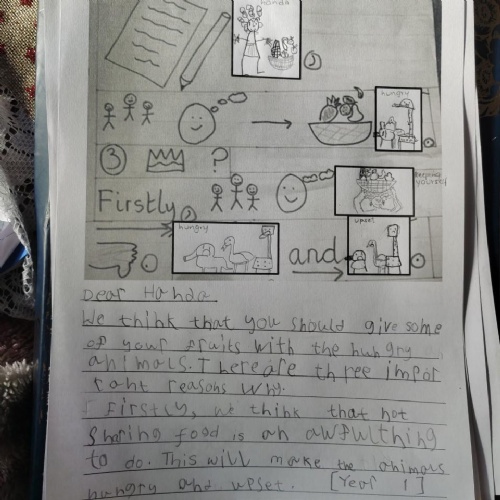 handa
hungry
3 ?
Firstly,
keeping yourself
hungry
upset
and
Dear Handa
We think that you should give some
of your fruits with the hungry
animals. There are three impor
tant reasons why.
Firstly, we think that not
Sharing food is an awfulthing
to do. This will make the animals
hungry and upset. [Year 1]